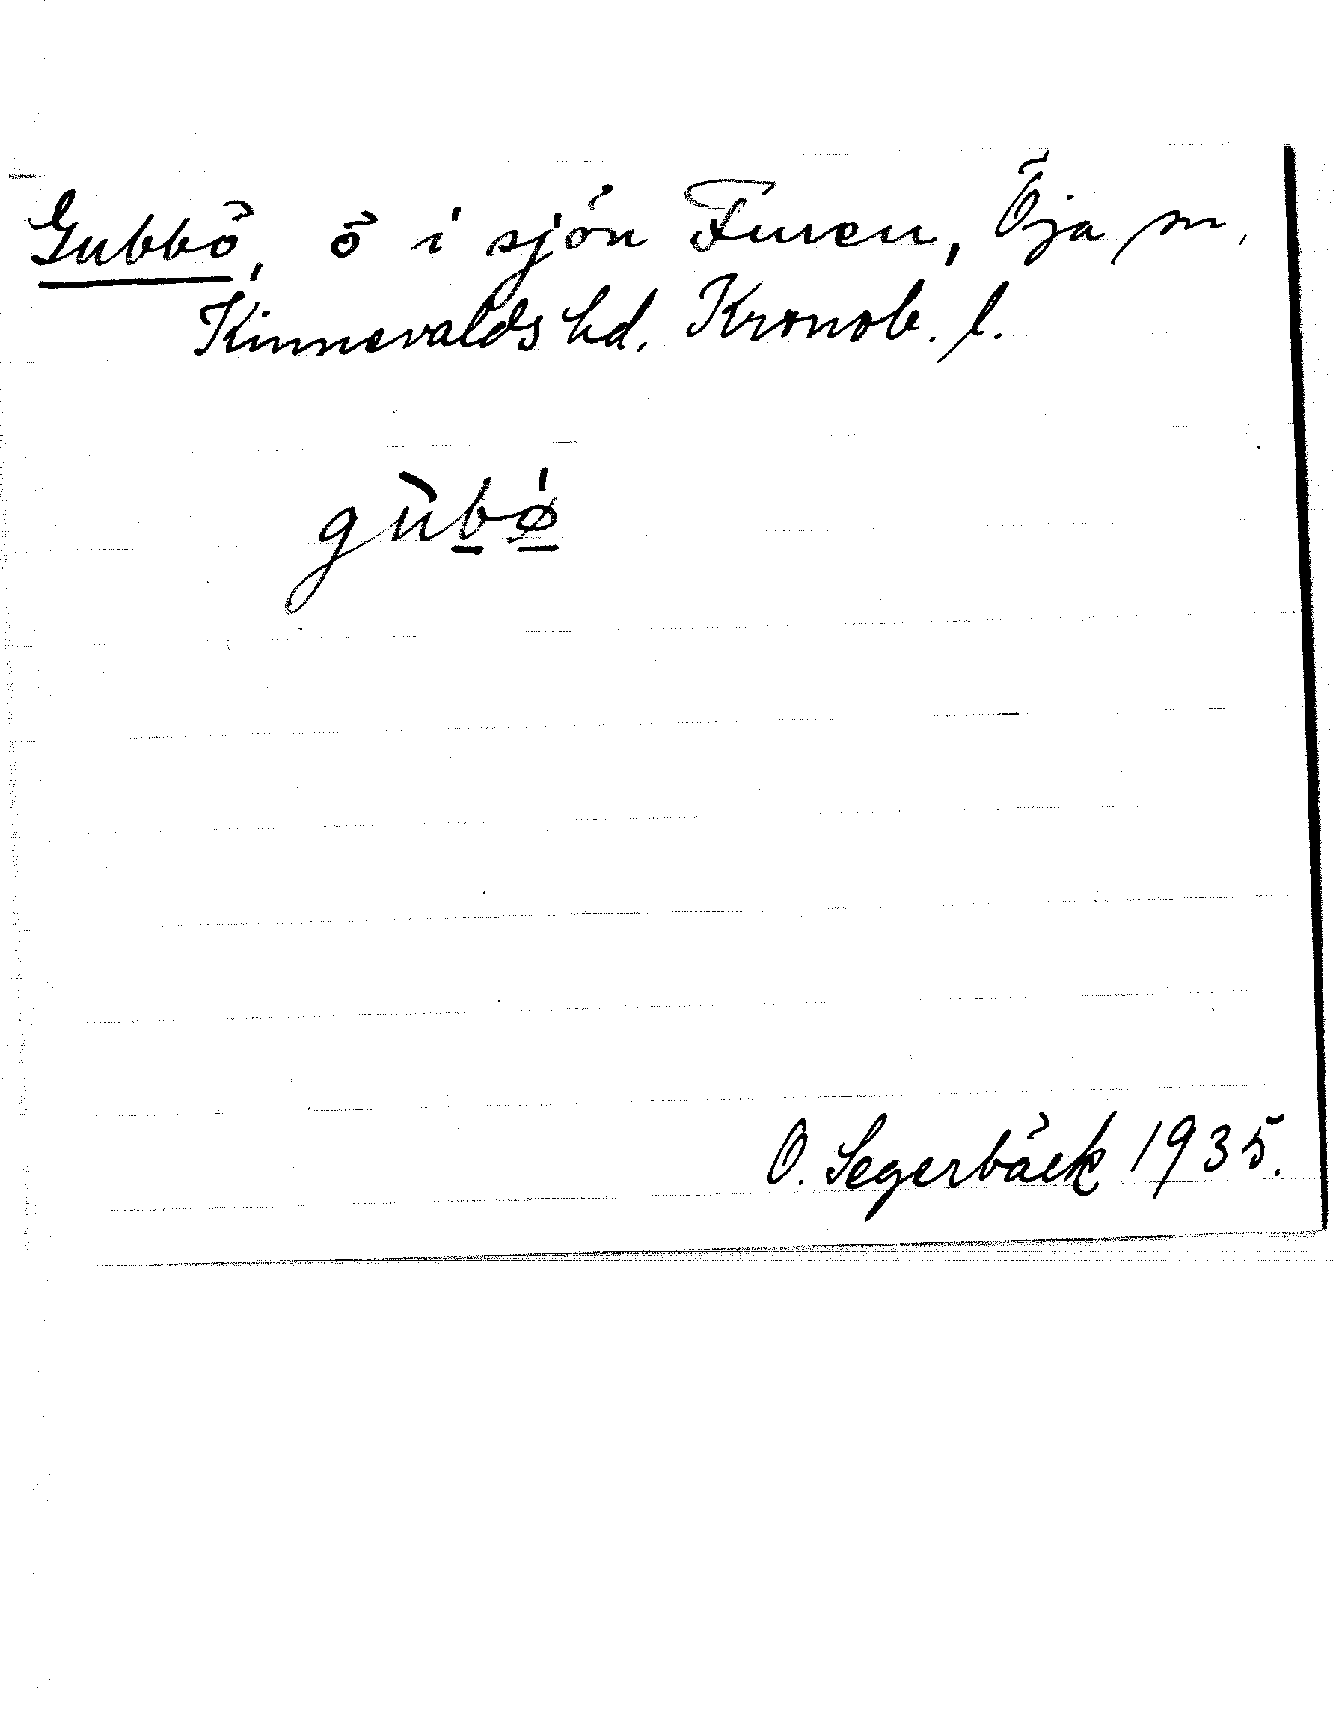 Gubbö, ö i sjön Furen, Öja sn,
Kinnevalds hd. Kronob. l.
gùb̲ǿ̲
O. Segerbäck 1935.